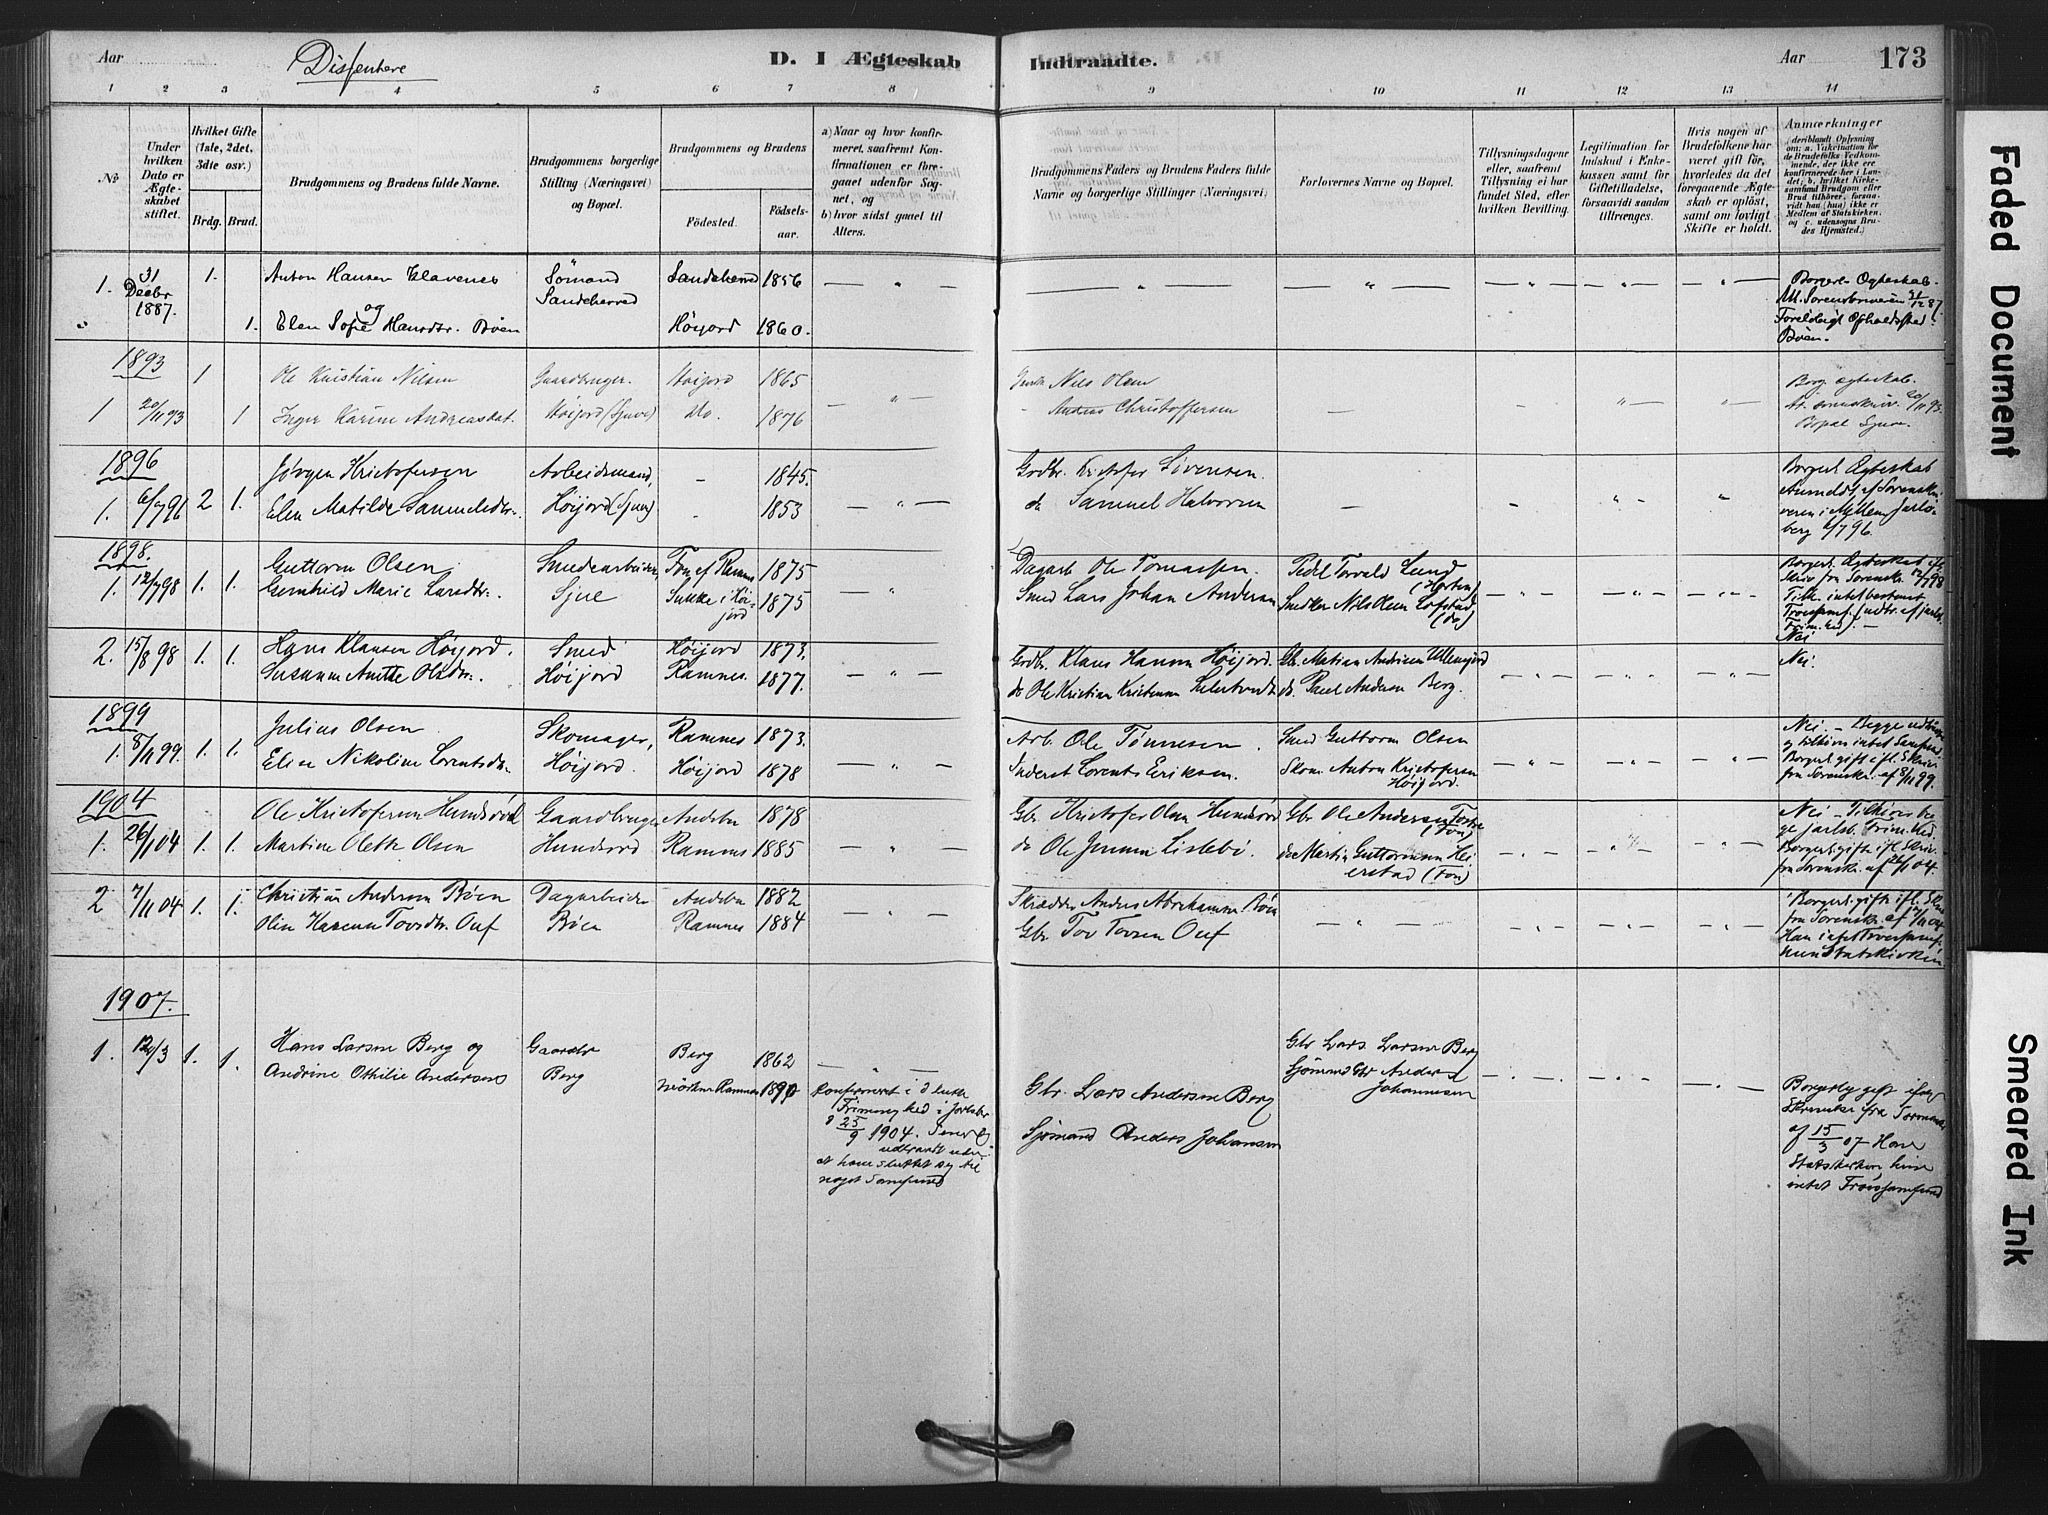 Aar
Dissentere
D. I Ægteskab
Indtraadte.
Aar
173
1 2 3 4 5 6 7 8
8 9 10 11 12 13 14
No
Under hvilken Dato er Ægteskabet stiftet.
Hvilket Gifte (1ste, 2det, 3die osv.)
Brdg. Brud.
Brudgommens og Brudens fulde Navne.
Brudgommens borgerlige Stilling (Næringsvei) og Bopæl.
Brudgommens og Brudens
Fødested.
Fødselsaar.
a) Naar og hvor konfirmeret, saafremt Konfirmationen er foregaaet udenfor Sognet, og
b) hvor sidst gaaet til Alters.
Brudgommens Faders og Brudens Faders fulde Navne og borgerlige Stillinger (Næringsvei).
Forlovernes Navne og Bopæl.
Tillysningsdagene eller, saafremt Tillysning ei har fundet Sted, efter hvilken Bevilling.
Legitimation for Indskud i Enkekassen samt for Giftetilladelse, forsaavidt saadan tiltrænges.
Hvis nogen af Brudefolkene har været gift før, hvorledes da det foregaaende Ægteskab er opløst, samt om lovligt Skifte er holdt.
Anmærkninger
(deriblandt Oplysning om: a. Vakcination for de Brudefolks Vedkommende, der ikke ere konfirmerede her i Landet; b. hvilket Kirkesamfund Brudgom eller Brud tilhører, forsaavidt han (hun) ikke er Medlem af Statskirken, og c. udensogns Brudes Hjemsted.)
1. 31 Decbr 1887. 1. Anton Hansen Klavenes Sømand Sandeherred Sandeherred 1856
og
1. Elen Sofie Hansdtr. Bøen Høijord 1860.
Borgerl. Ægteskab. Att. Sorenskriveren 31/12 87. Foreløbigt Opholdssted: Bøen.
1893
1 Ole Kristian Nilsen Gaardbruger. Høijord 1865
Nils Olsen
Borg. ægteskab.
1 20/11 93 1 Inger Karine Andreasdat. Høijord (Gjuve) Do. 1876
Anders Christoffersen
At. sorenskriv. 20/11 93.
Bopæl Gjuve.
1896
Jørgen Kristofersen Arbeidsmand, - 1845.
Grdbr. Kristofer Sørensen
Borgerl. Ægteskab
1. 6/7 96 2 1. Elen Matilde Samuelsdtr. Høijord (Gjuve) - 1853
do Samuel Halvorsen
Anmeldt af Sorenskriveren i Mellem Jarlsberg 6/7 96.
1898.
Guttorm Olsen Smedearbeider, Fon af Ramnes 1875
Dagarb. Ole Tomassen. Pedl Torvald Lund (Horten)
1. 12/7 98 1. 1. Gernhild Marie Larsdtr. Gjue Sukke i Høijord 1875
Smed Lars Johan Andersen Snedker Nils Olsen Lofstad (do)
Borgerl. Ægteskab ifl. Skriv. fra Sorenskr. 12/7 98
Tilh. intet bestemt Trossamf. (udtr. af jarlsb. Frim.ked). —
Nei
2. 15/8 98 1. 1. Hans Klausen Høijord. Smed Høijord 1873.
Grdbr. Klaus Hansen Høijord. Gb. Matias Andersen Ullensjord
Nei.
Susanne Anette Olsdtr. Høijord Ramnes. 1877.
do Ole Kristian Kristensen do. Paul Andersen Berg.
1899
Julius Olsen Skomager, Ramnes 1873.
Arb. Ole Tønnesen. Smed Guttorm Olsen
1. 8/11 99. 1. 1. Elise Nikoline Lorentsdtr. Høijord. Høijord 1878
Inderst Lorents Eriksen. Skom. Anton Kristofersen Høijord.
Nei — Begge udtraadte og tilhører intet Samfund. Borgerl. gift ifl. Skriv. fra Sorenskr. af 8/11 99.
1904
Ole Kristofersen Hundsrød Gaardbruger Andebu 1878
Gbr. Kristofer Olsen Hundsrød Gbr. Ole Andersen (Fon)
1. 26/1 04 1. 1. Martine Olette Olsen Hundsrød Ramnes 1885
do Ole Jensen Lislebø do Martin Guttormsen Heierstad (Fon)
Nei — Tilhører begge jarlsb. Frim.ked. Borgerl. gift ifl. Skriv. fra Sorenskr. af 26/1 04.
2 7/11 04. 1. 1. Christian Andersen Bøen Dagarbeider Andebu 1882
Skrædder Anders Abrahamsen Bøen
Olin Hansen Tovsdtr. Ouf Bøen Ramnes 1884
Gbr. Tov Tovsen Ouf
Borgerl. gift ifl. Skr. fra Sorenskr. af 7/11 04. Han intet Trossamf. hun Statskirken
1907.
1. 12/3 1. 1. Hans Larsen Berg og Gaardbr Berg 1862
Gbr Lars Larsen Berg
Andrine Othilie Andersen Berg Ramnes 1890
Sjømand Gbr Anders Johannesen
konfirmeret i d luthke Frimenighed i Jarlsber d 25/9 1904. Senere udtraadt uden at have sluttet sig til noget Samfund
Gbr. Lars Andersen Berg
Sjømand Anders Johansen
Borgerlig gift ifølge Skrivelse fra Sorenskr af 15/3 07 Han Statskirken, hun intet Trossamfund
Faded Document
Smeared Ink